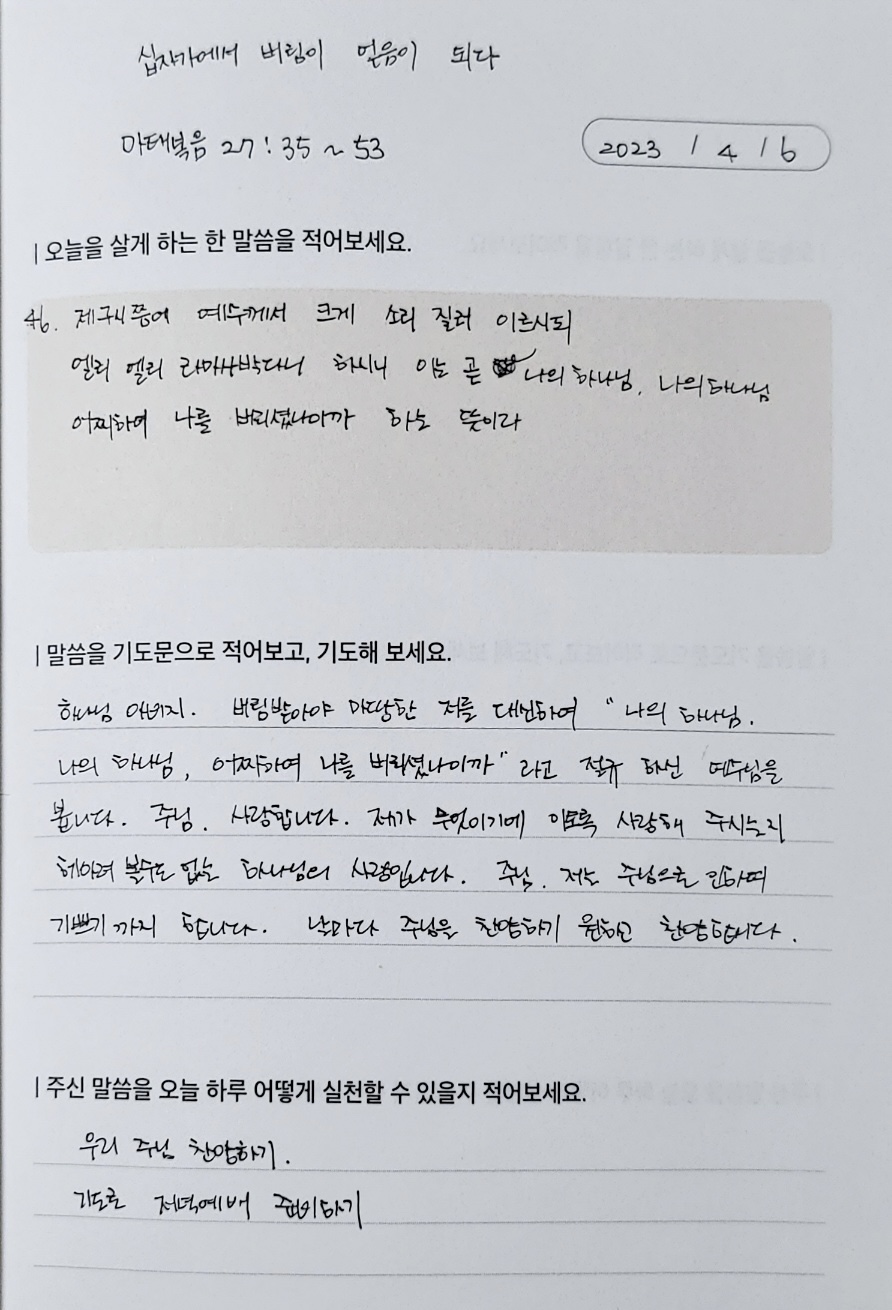 십자가에서 버림이 얻음이 되다
마태복음 27:35~53
2023 / 4 / 6
오늘을 살게 하는 한 말씀을 적어보세요.
46. 제구시쯤에 예수께서 크게 소리 질러 이르시되
엘리 엘리 라마사박다니 하시니 이는 곧 나의 하나님, 나의 하나님
어찌하여 나를 버리셨나이까 하는 뜻이라
말씀을 기도문으로 적어보고, 기도해 보세요.
하나님 아버지. 버림받아야 마땅한 저를 대신하여 "나의 하나님.
나의 하나님, 어찌하여 나를 버리셨나이까" 라고 절규 하신 예수님을
봅니다. 주님. 사랑합니다. 제가 무엇이기에 이토록 사랑해 주시는지
헤아려 볼수도 없는 하나님의 사랑입니다. 주님. 저는 주님으로 인하여
기쁘기 까지 합니다. 날마다 주님을 찬양하기 원하고 찬양합니다.
주신 말씀을 오늘 하루 어떻게 실천할 수 있을지 적어보세요.
우리 주님 찬양하기.
기도로 저녁예배 준비하기